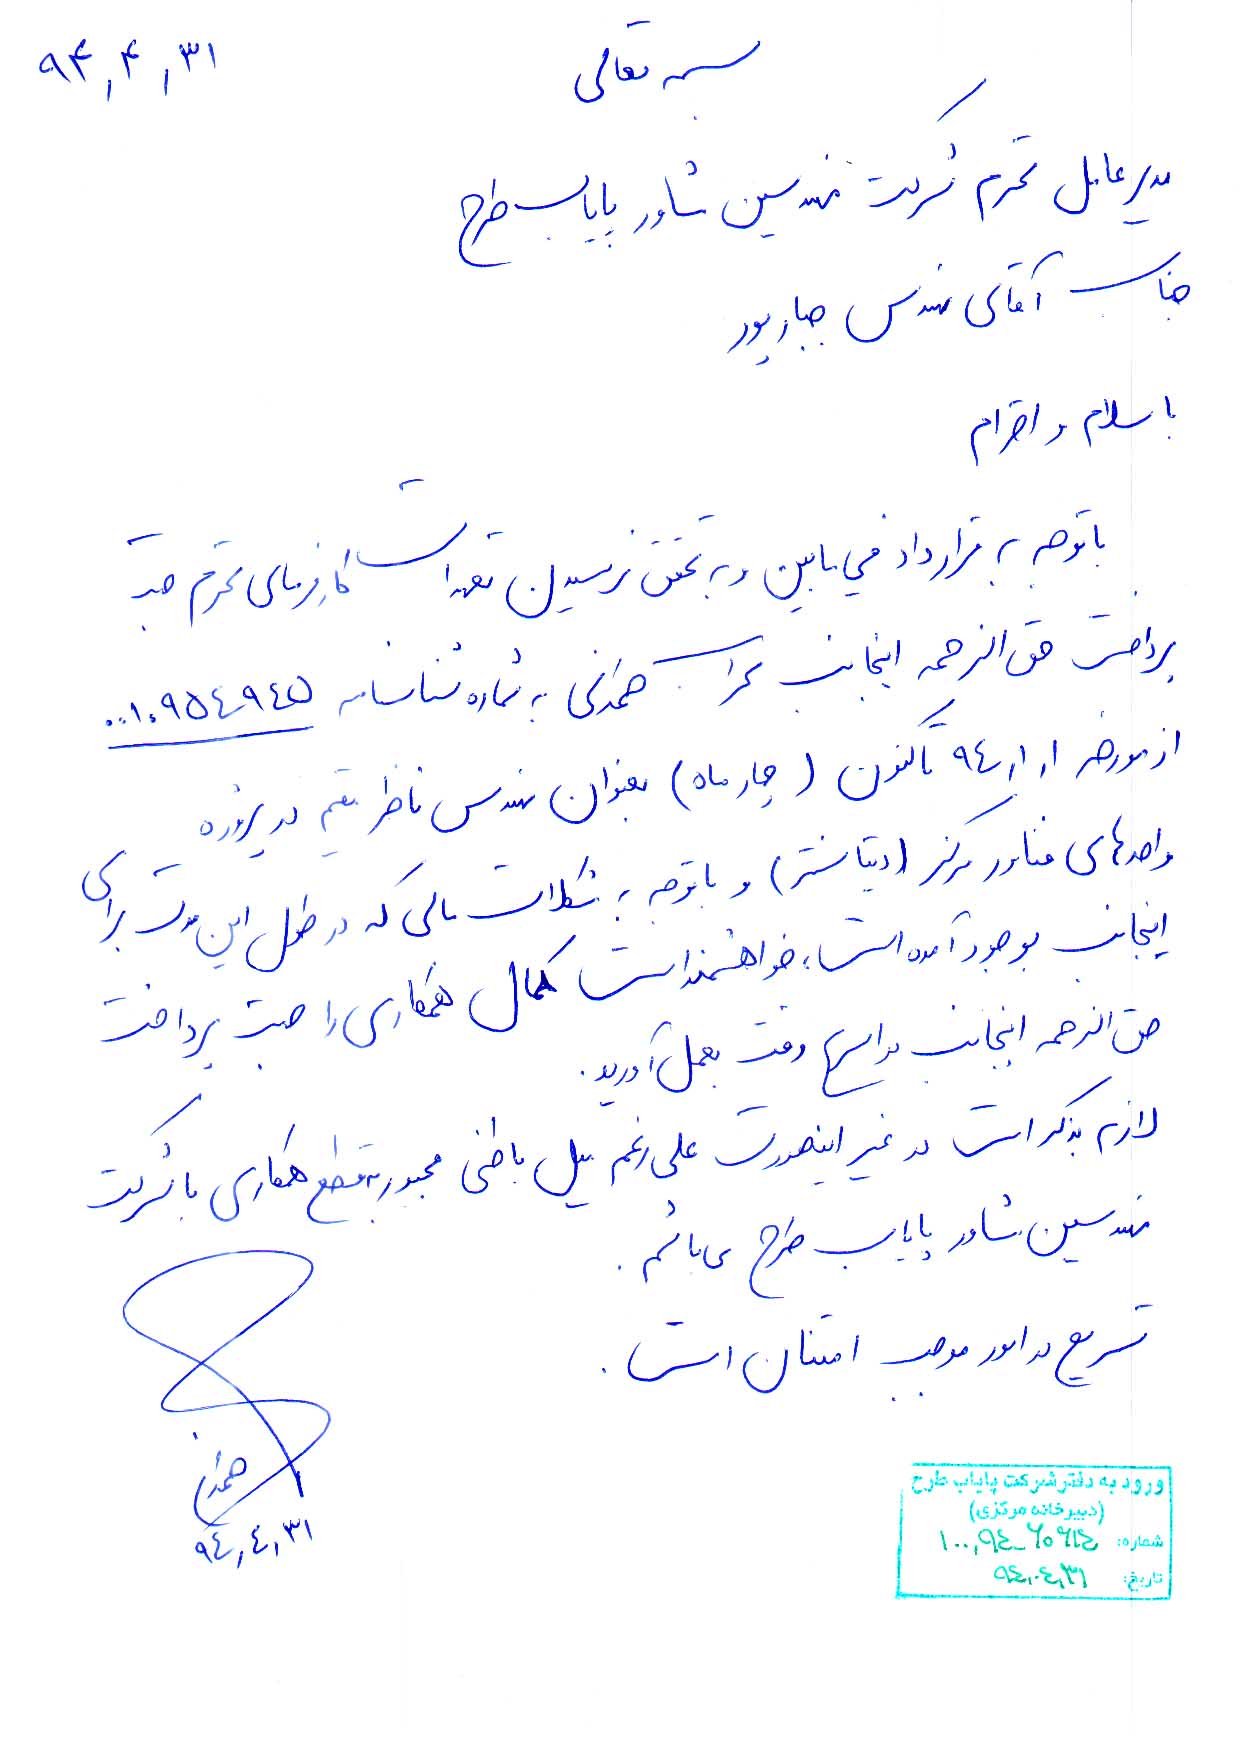 ۹۴,۴,۳۱
بسمه تعالی
مدیرعامل محترم شرکت مهندسین مشاور پایاب طرح
جناب آقای مهندس جبارپور
با سلام و احترام
باتوجه به قرارداد فی مابین و به تحقق نرسیدن تعهدات کارفرمای محترم جهت
پرداخت حق الزحمه اینجانب سحراب همدانی به شماره شناسنامه ۰۰۱۰۹۵۴۹۴۵
از مورخه ۹۴,۱,۱ تاکنون (چهار ماه) بعنوان مهندس ناظر مقیم در پروژه
واحدهای فناور مرکز (دیتا سنتر) و باتوجه به مشکلات مالی که در طول این مدت برای
اینجانب بوجود آمده است، خواهشمند است کمال همکاری را جهت پرداخت
حق الزحمه اینجانب در اسرع وقت بعمل آورید.
لازم بذکر است در غیر اینصورت علی رغم میل باطنی مجبور به قطع همکاری با شرکت
مهندسین مشاور پایاب طرح می باشم.
تسریع در امور موجب امتنان است.
همدانی
۹۴,۴,۳۱
ورود به دفتر شرکت پایاب طرح
(دبیرخانه مرکزی)
شماره:
تاریخ: ۹۴,۰۴,۳۱